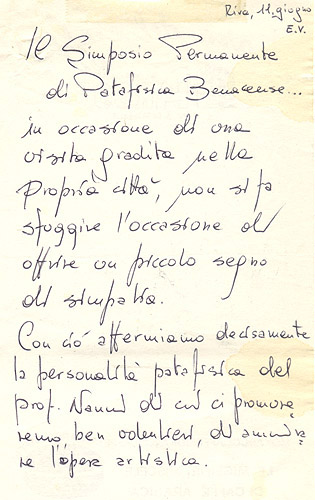 Riva, 11 giugno
E.V.
Il Simposio Permanente
di Patafisica Benacense...
in occasione di una
visita gradita nella
propria città, non si fa
sfuggire l'occasione di
offrire un piccolo segno
di simpatia.
Con ciò affermiamo decisamente
la personalità patafisica del
prof. Nanni di cui ci promove
remo, ben volentieri, di ammira
re l'opera artistica.